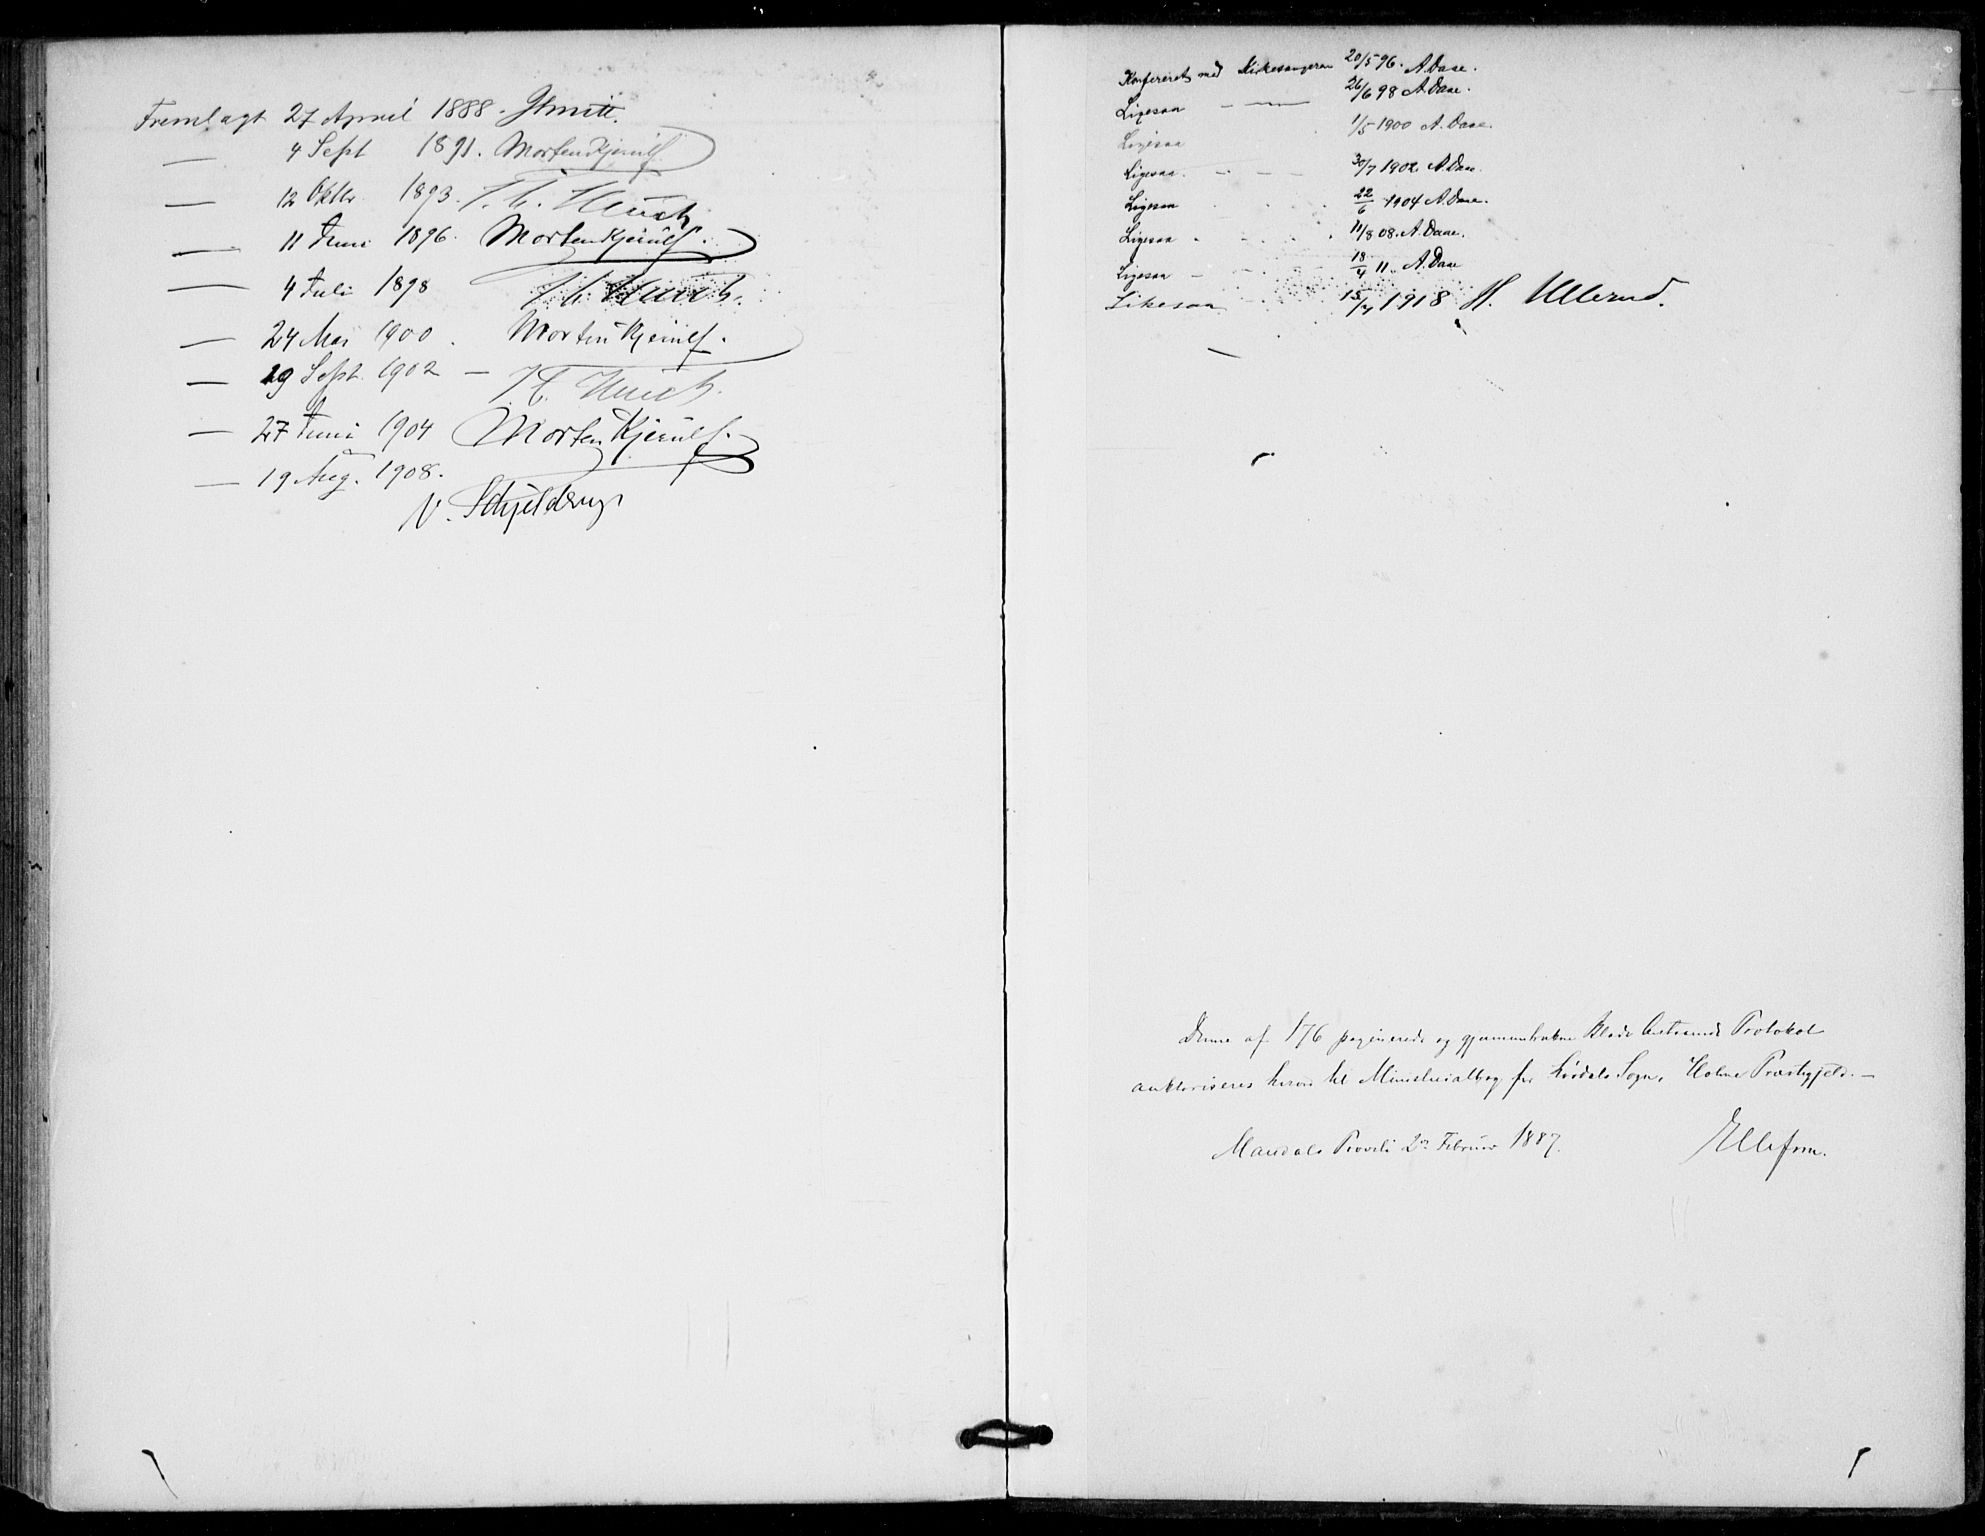 Fremlagt 27 April 1888.
— 4 Sept 1891. Morten Kjerulf
— 12 Oktbr 1893. J. C. Heuch
— 11 Juni 1896. Morten Kjerulf.
— 4 Juli 1898 J. C. Heuch.
— 24 Mai 1900. Morten Kjerulf.
— 29 Sept. 1902 — J. C. Heuch.
— 27 Juni 1904 Morten Kjerulf.
— 19 Aug. 1908.
N. Schjelderup
Konfereret med Kirkesangeren 20/5 96. A. Daae.
Ligesaa — — 26/6 98 A. Daae.
Ligesaa 1/5 1900 A. Daae.
Ligesaa. - - - 30/7 1902 A. Daae.
Ligesaa 22/6 1904 A. Daae.
Ligesaa - - - . 11/8 08. A. Daae.
Ligesaa - - - 18/4 11. A. Daae
Likesaa 15/7 1918 H. Ullerud.
Denne af 176 paginerede og gjennemtrukne Blade bestaaende Protokol
auktoriseres herved til Ministerialbog for Sogn, Holme Præstegjeld. —
Mandals Provsti 2den Februar 1887. Ellefsen.